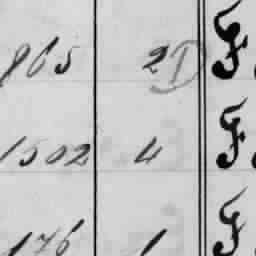 865 2 D F
1502 4 F
176 1 F